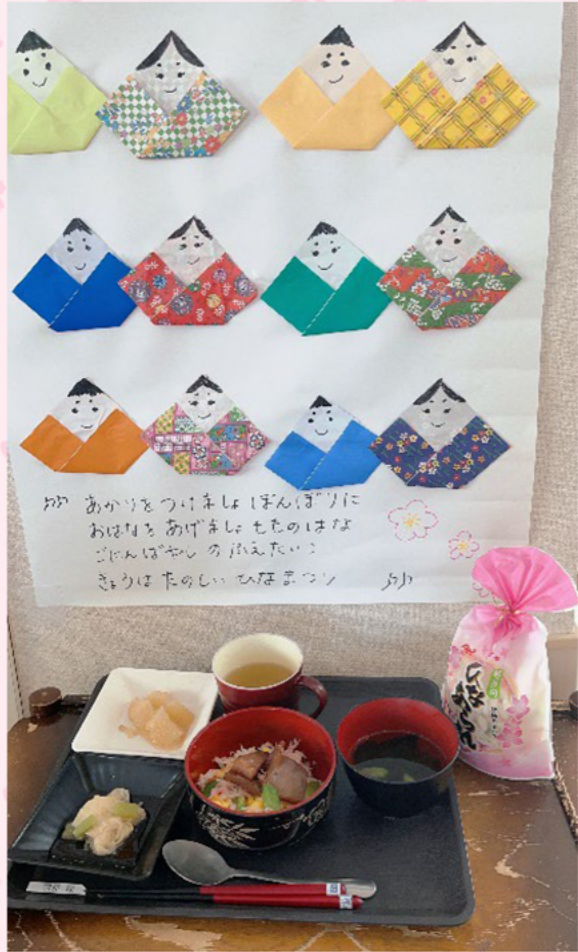 ♪♪ あかりをつけましょ ぼんぼりに
おはなを あげましょ ももの はな
ごにんばやしの ふえたいこ
きょうは たのしい ひなまつり ♪♪
ひなあられ